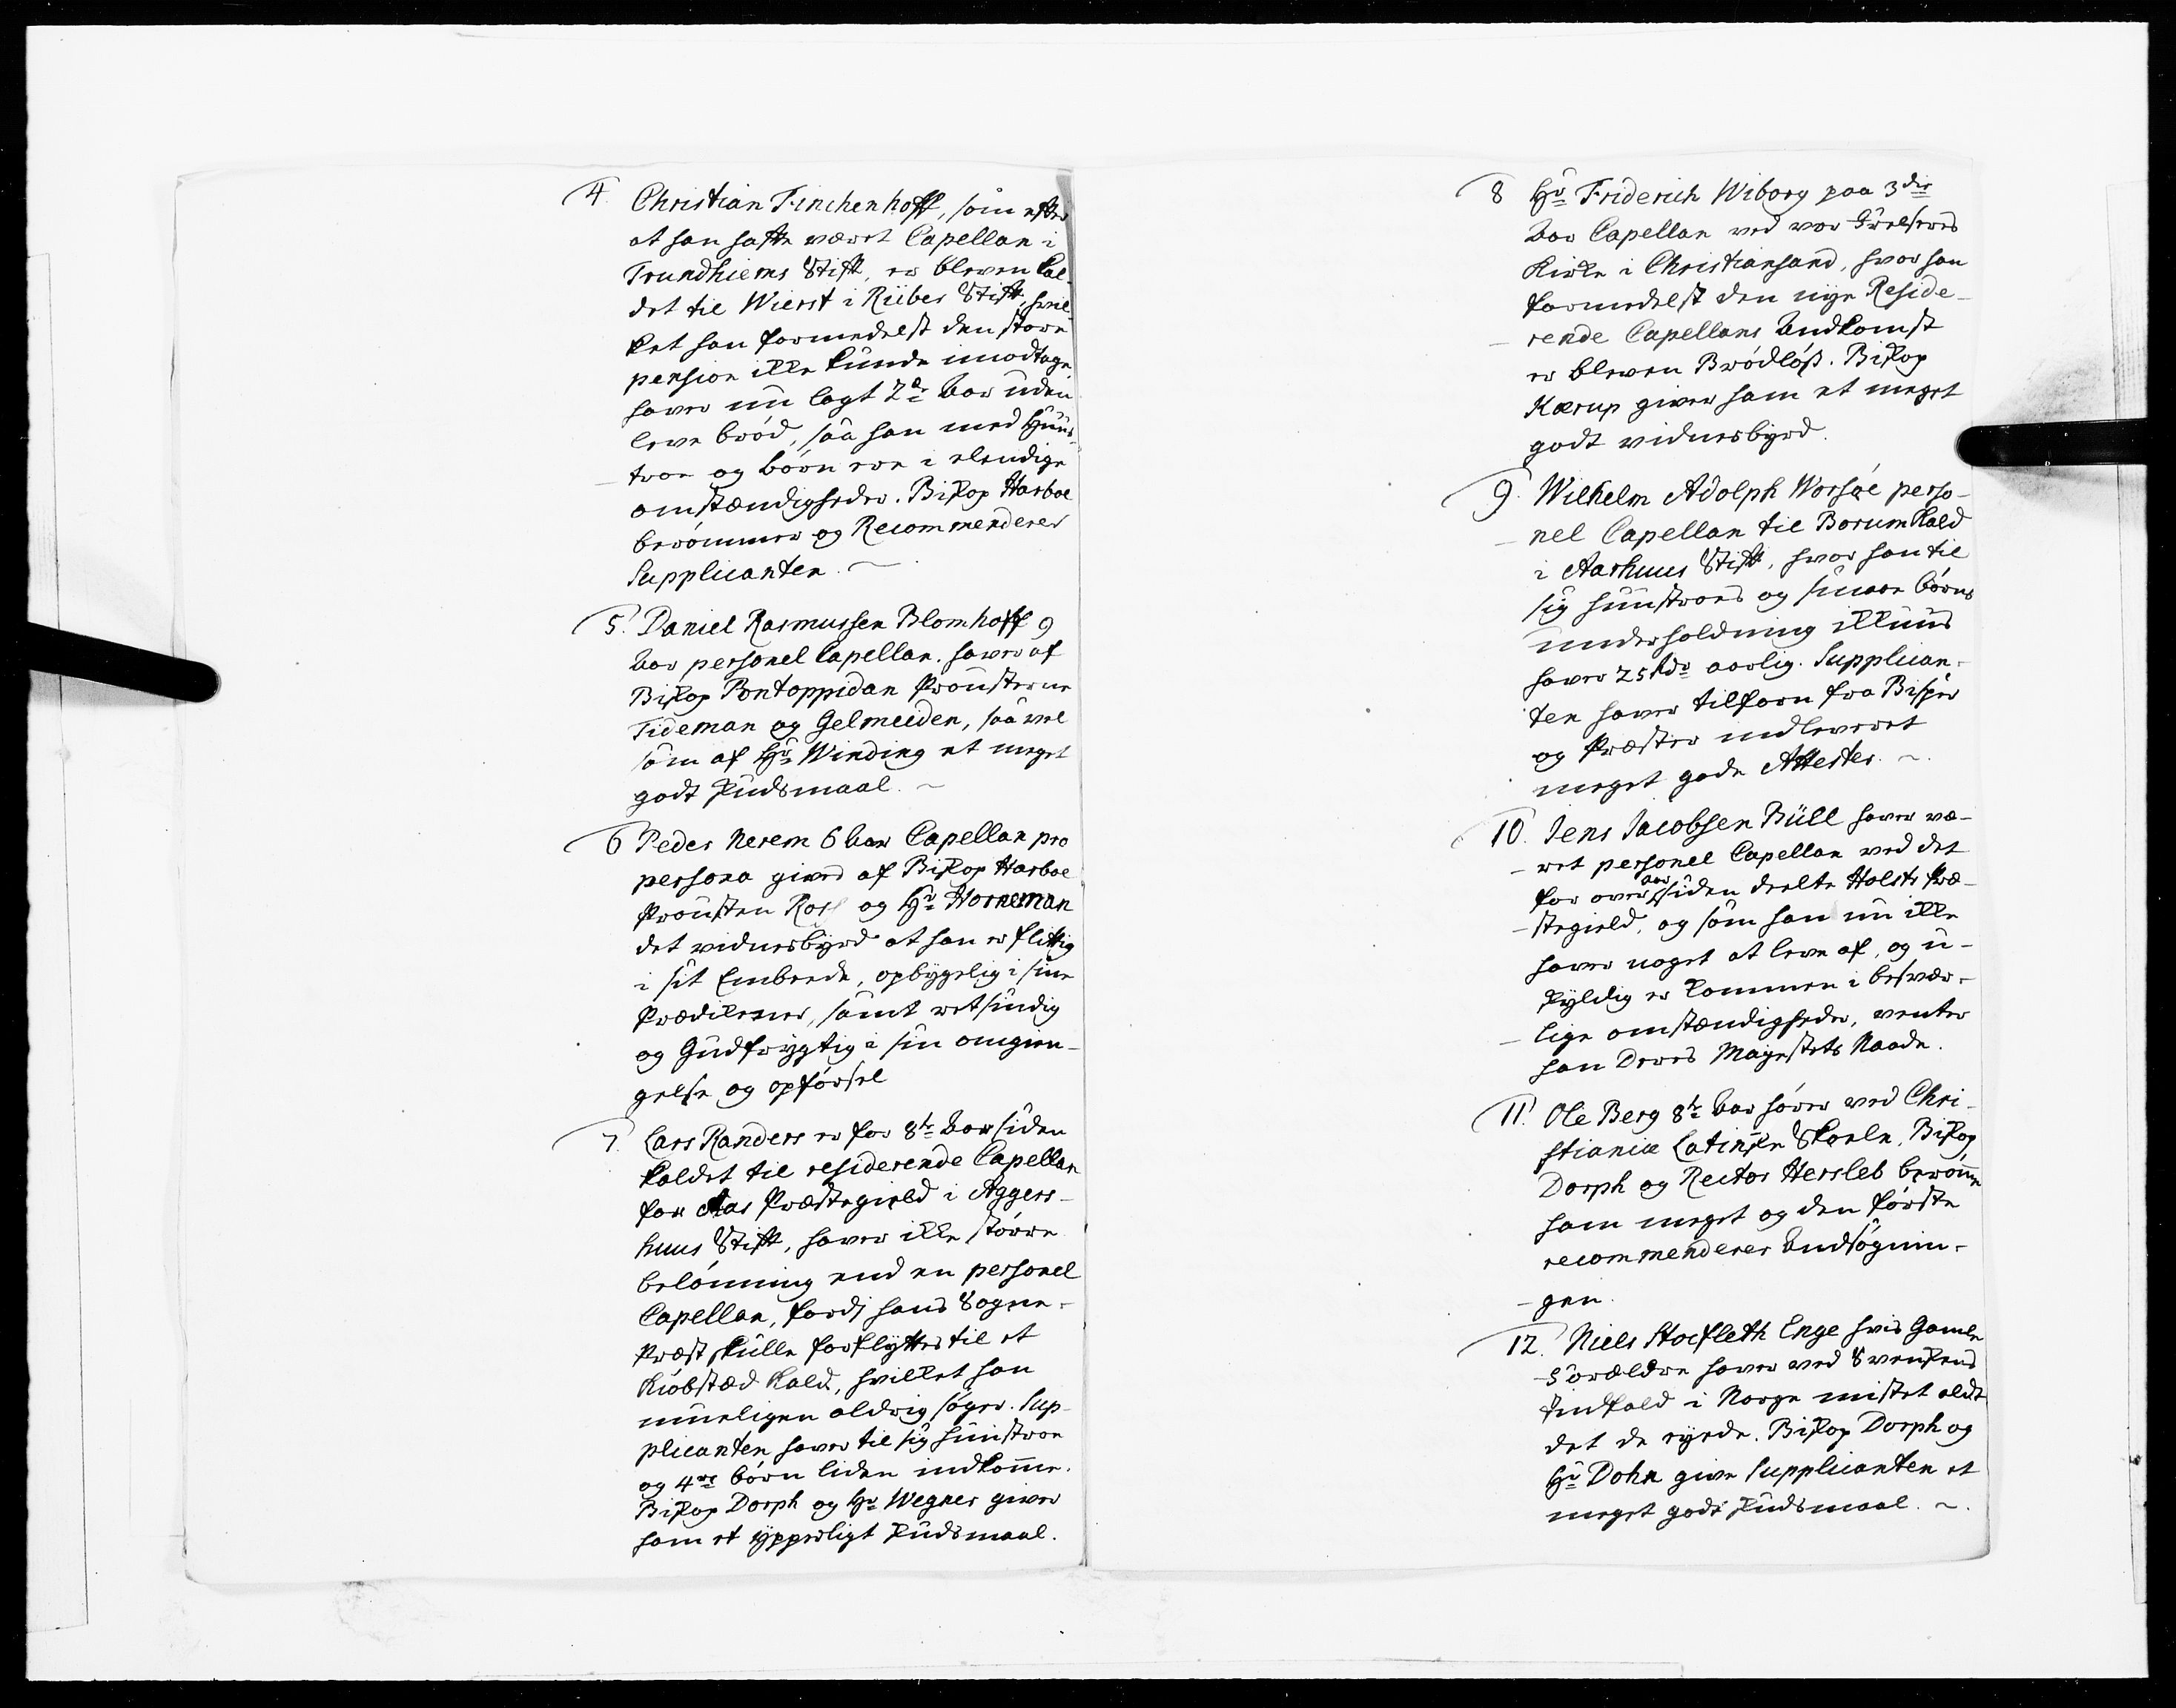 4. Christian Finchenhoff, som efter
at han hafde været Capellan i
Trundhiems Stift, er bleven kal-
det til Wierst i Riiber Stift, hvil-
ket han formedelst den store
pension ikke kunde imodtage,
haver nu lagt 2de Aar uden
leve brød, saa han med Huus-
troe og børn ere i elendige
omstændigheder. Biskop Harboe
berømmer og Recommenderer
Supplicanten.
5. Daniel Rasmussen Blomhoff 9
Aar personel Capellan. haver af
Biskop Pontoppidan Provsterne
Tideman og Gelmeiden, saa vel
som af Hr. Winding et meget
godt skudsmaal.
6 Peder Nerem 6 Aar Capellan pro
persona gives af Biskop Harboe
Provsten Ross og Hr. Horneman
det vidnesbyrd at han er flittig
i sit Embede, opbygelig i sine
Prædikener, samt retsindig
og Gudfrygtig i sin omgien-
gelse og opførsel
7. Lars Randers er for 8te Aar siden
kaldet til residerende Capellan
for Aas Præstegield i Aggers-
huus Stift, haver ikke større
belønning end en personel
Capellan, fordi hans Sogne-
Præst skulle forflyttes til et
Kiøbstæd kald, hvilket han
mueligen aldrig søger. Sup-
plicanten haver til sig hustroe
og 4re børn liden indkomme.
Biskop Dorph og Hr. Wegner giver
ham et ypperligt skudsmaal.
8 Hr. Friderich Wiborg paa 3die
Aar Capellan ved vor Frelseres
Kirke i Christiansand, hvor han
formedelst den nye Reside-
rende Capellans Ankomst
er bleven Brødløs. Biskop
Kærup giver ham et meget
godt vidnesbyrd.
9. Wilhelm Adolph Worsøe perso-
nel Capellan til Borum Kald
i Aarhuus Stift, hvor han til
sig hustroes og smaae børns
underholdning ikkuns
haver 25 rdr aarlig. Supplican-
ten haver tilforn fra Bisper
og Præster indleveret
meget gode Attester.
10. Jens Jacobsen Büll haver væ-
ret personel Capellan ved det
for over aar siden deelte Holsts Præ-
stegield, og som han nu ikke
haver noget at leve af, og u-
skyldig er kommen i besvær-
lige omstændigheder, venter
han Deres Mayestets Naade.
11. Ole Berg 8te Aar hører ved Chri-
stianiæ Latinske Skoele. Biskop
Dorph og Rector Hersleb berømme
ham meget og den første
recommenderer Ansøgnin-
gen.
12. Niels Stockfleth Enge hvis Gamle
Forældre haver ved Svenskens
Indfald i Norge mistet aldt
det de eyede. Biskop Dorph og
Hr. Dohn give Supplicanten et
meget godt skudsmaal.